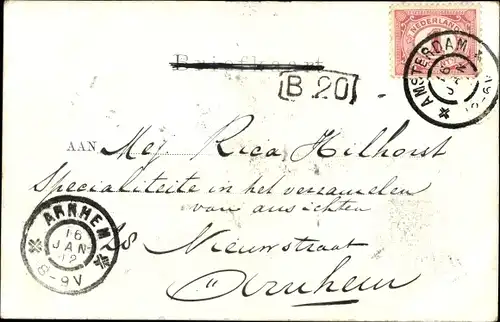 NEDERLAND
AMSTERDAM
Briefkaart
B 20
AAN Mej Rica Hilhorst
Specialiteite in het verzamelen
van ansichten
28 Nieuwstraat
Arnhem
ARNHEM
16
JAN
12
8-9V